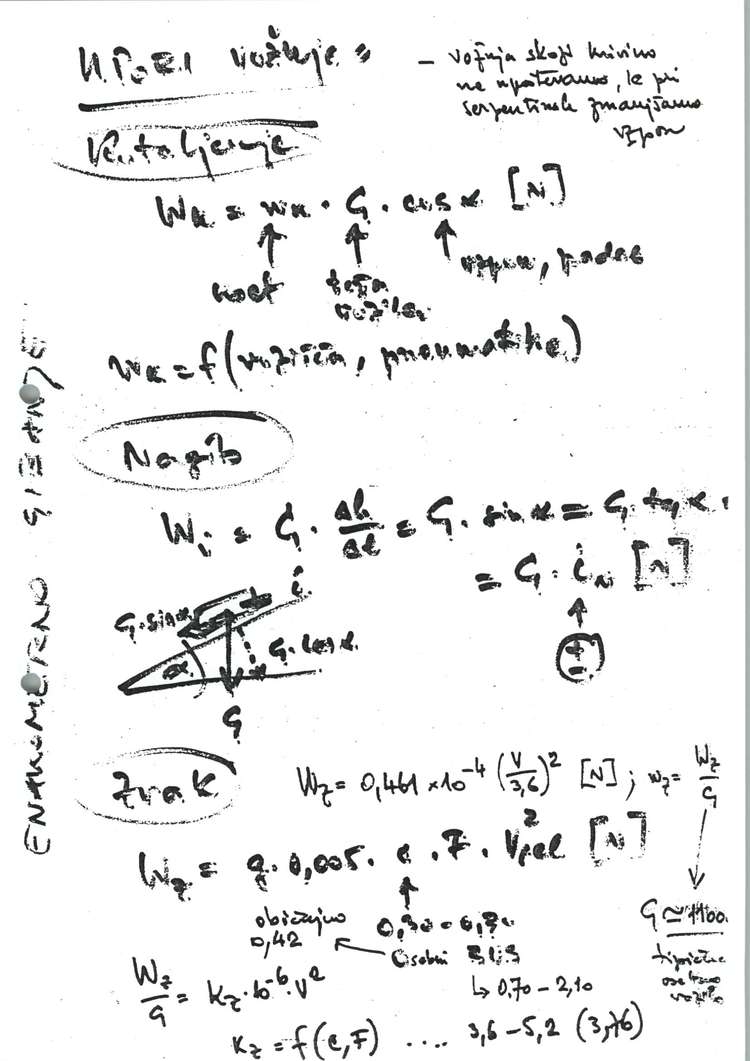 UPORI vožnje =
- vožnja skozi krivino
ne upoštevamo, ke pri
serpentinah zmanjšamo
vzpon
Kotaljenje
Wk = wk · G · cos α [N]
koef teža vozila vzpon, padec
wk = f(vozišča, pnevmatike)
ENAKOMERNO GIBANJE
Nagib
Wi = G · Δh/Δl = G · sin α = G · tg α ·
= G · iN [N]
±
G·sin α i
α G·cos α
G
Zrak
Wz = 0,461 ×10⁻⁴ (V/3,6)² [N] ; wz = Wz/G
Wz = g · 0,005 · c · F · V²rel [N]
običajno 0,42
0,30 - 0,50
Osebni BUS
↳ 0,70 - 2,10
G ≃ 1100
tipične
osebno
vozilo
Wz/G = Kz · 10⁻⁶ · V²
Kz = f(c, F) .... 3,6 - 5,2 (3,76)